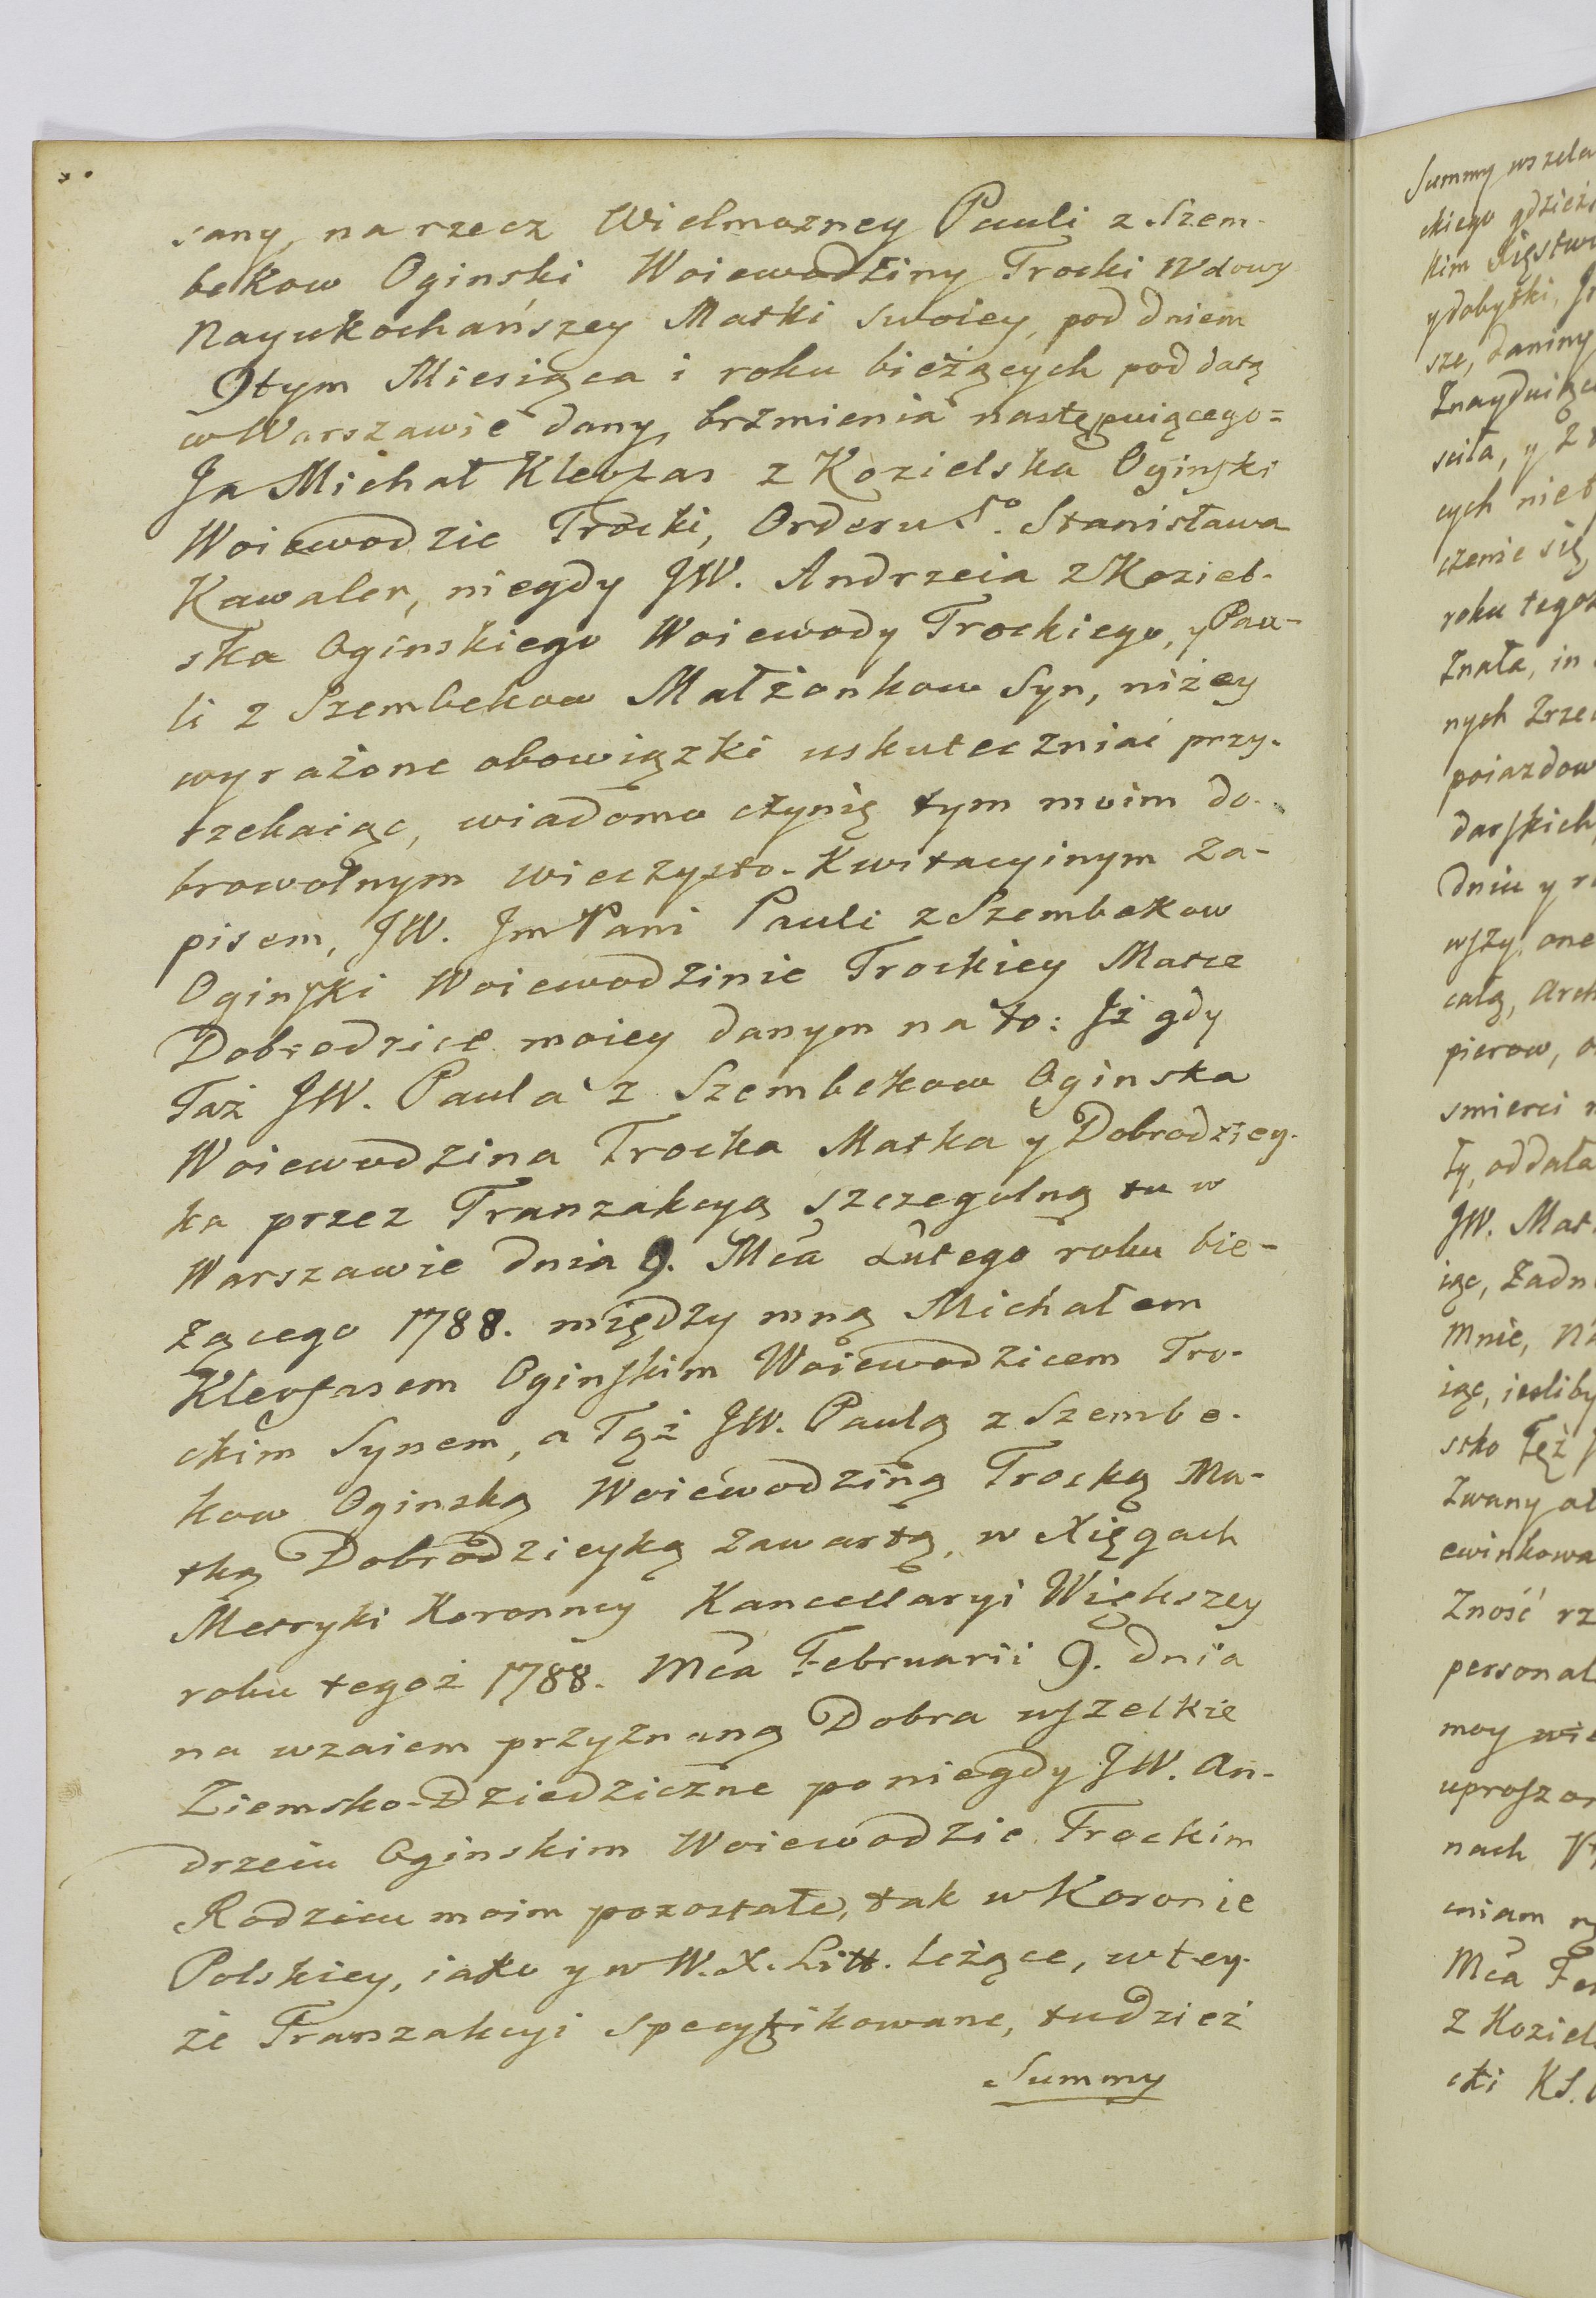 sany, na rzecz Wielmozney Pauli z Szem-
bekow Oginski Woiewodziny Trocki Wdowy
Nayukochańszey Matki swoiey, pod dniem
9tym Miesiąca i roku bieżących pod datą
w Warszawie dany, brzmienia następuiącego=
Ja Michał Kleofas z Kozielska Oginski
Woiewodzic Trocki, Orderu Sº. Stanisława
Kawaler, niegdy JW. Andrzeia z Koziel-
ska Oginskiego Woiewody Trockiego, y Pau-
li z Szembekow Małżonkow Syn, niżey
wyrażone obowiązki uskuteczniać przy-
rzekaiąc, wiadomo czynię tym moim do-
browolnym wieczysto-Kwitacyinym za-
pisem, JW. Jm Pani Pauli z Szembekow
Oginski Woiewodzinie Trockiey Matce
Dobrodzice moiey danym na to: Iż gdy
Taż JW. Paula z Szembekow Oginska
Woiewodzina Trocka Matka y Dobrodziey-
ka przez Tranzakcyą szczegulną tu w
Warszawie dnia 9. Mca Lutego roku bie-
żącego 1788. między mną Michałem
Kleofasem Oginskim Woiewodzicem Tro-
ckim Synem, a Tąż JW. Paulą z Szembe-
kow Oginską Woiewodziną Trocką Ma-
tką Dobrodzieyką zawartą, w Xięgach
Metryki Koronney Kancellaryi Większey
roku tegoż 1788. Mca Februarii 9. dnia
na wzaiem przyznaną Dobra wszelkie
Ziemsko-Dziedziczne po niegdy JW. An-
drzeiu Oginskim Woiewodzie Trockim
Rodzicu moim pozostałe, tak w Koronie
Polskiey, iako y w W. X. Litt. leżące, w tey-
że Tranzakcyi specyfikowane, tudzież
Summy
Summy wszela
ckiego gdzież
kim Xięstw
y dobytki,
sze, daniny
Znayduiąc
sciła, y
cych niet
czenie się
roku tegoż
Znała, in
nych Zrze
poiazdow
darskich
dniu y r
wszy, one
całą, Arch
pierow, o
smierci
ty, oddała
JW. Mat
iąc, Żadn
Mnie,
iąc, iesliby
stko Też
Zwany
ewinkowa
Zność rz
personal
moy wie
uproszo
nach
niam
Mca Fe
z Koziel
cki KS.